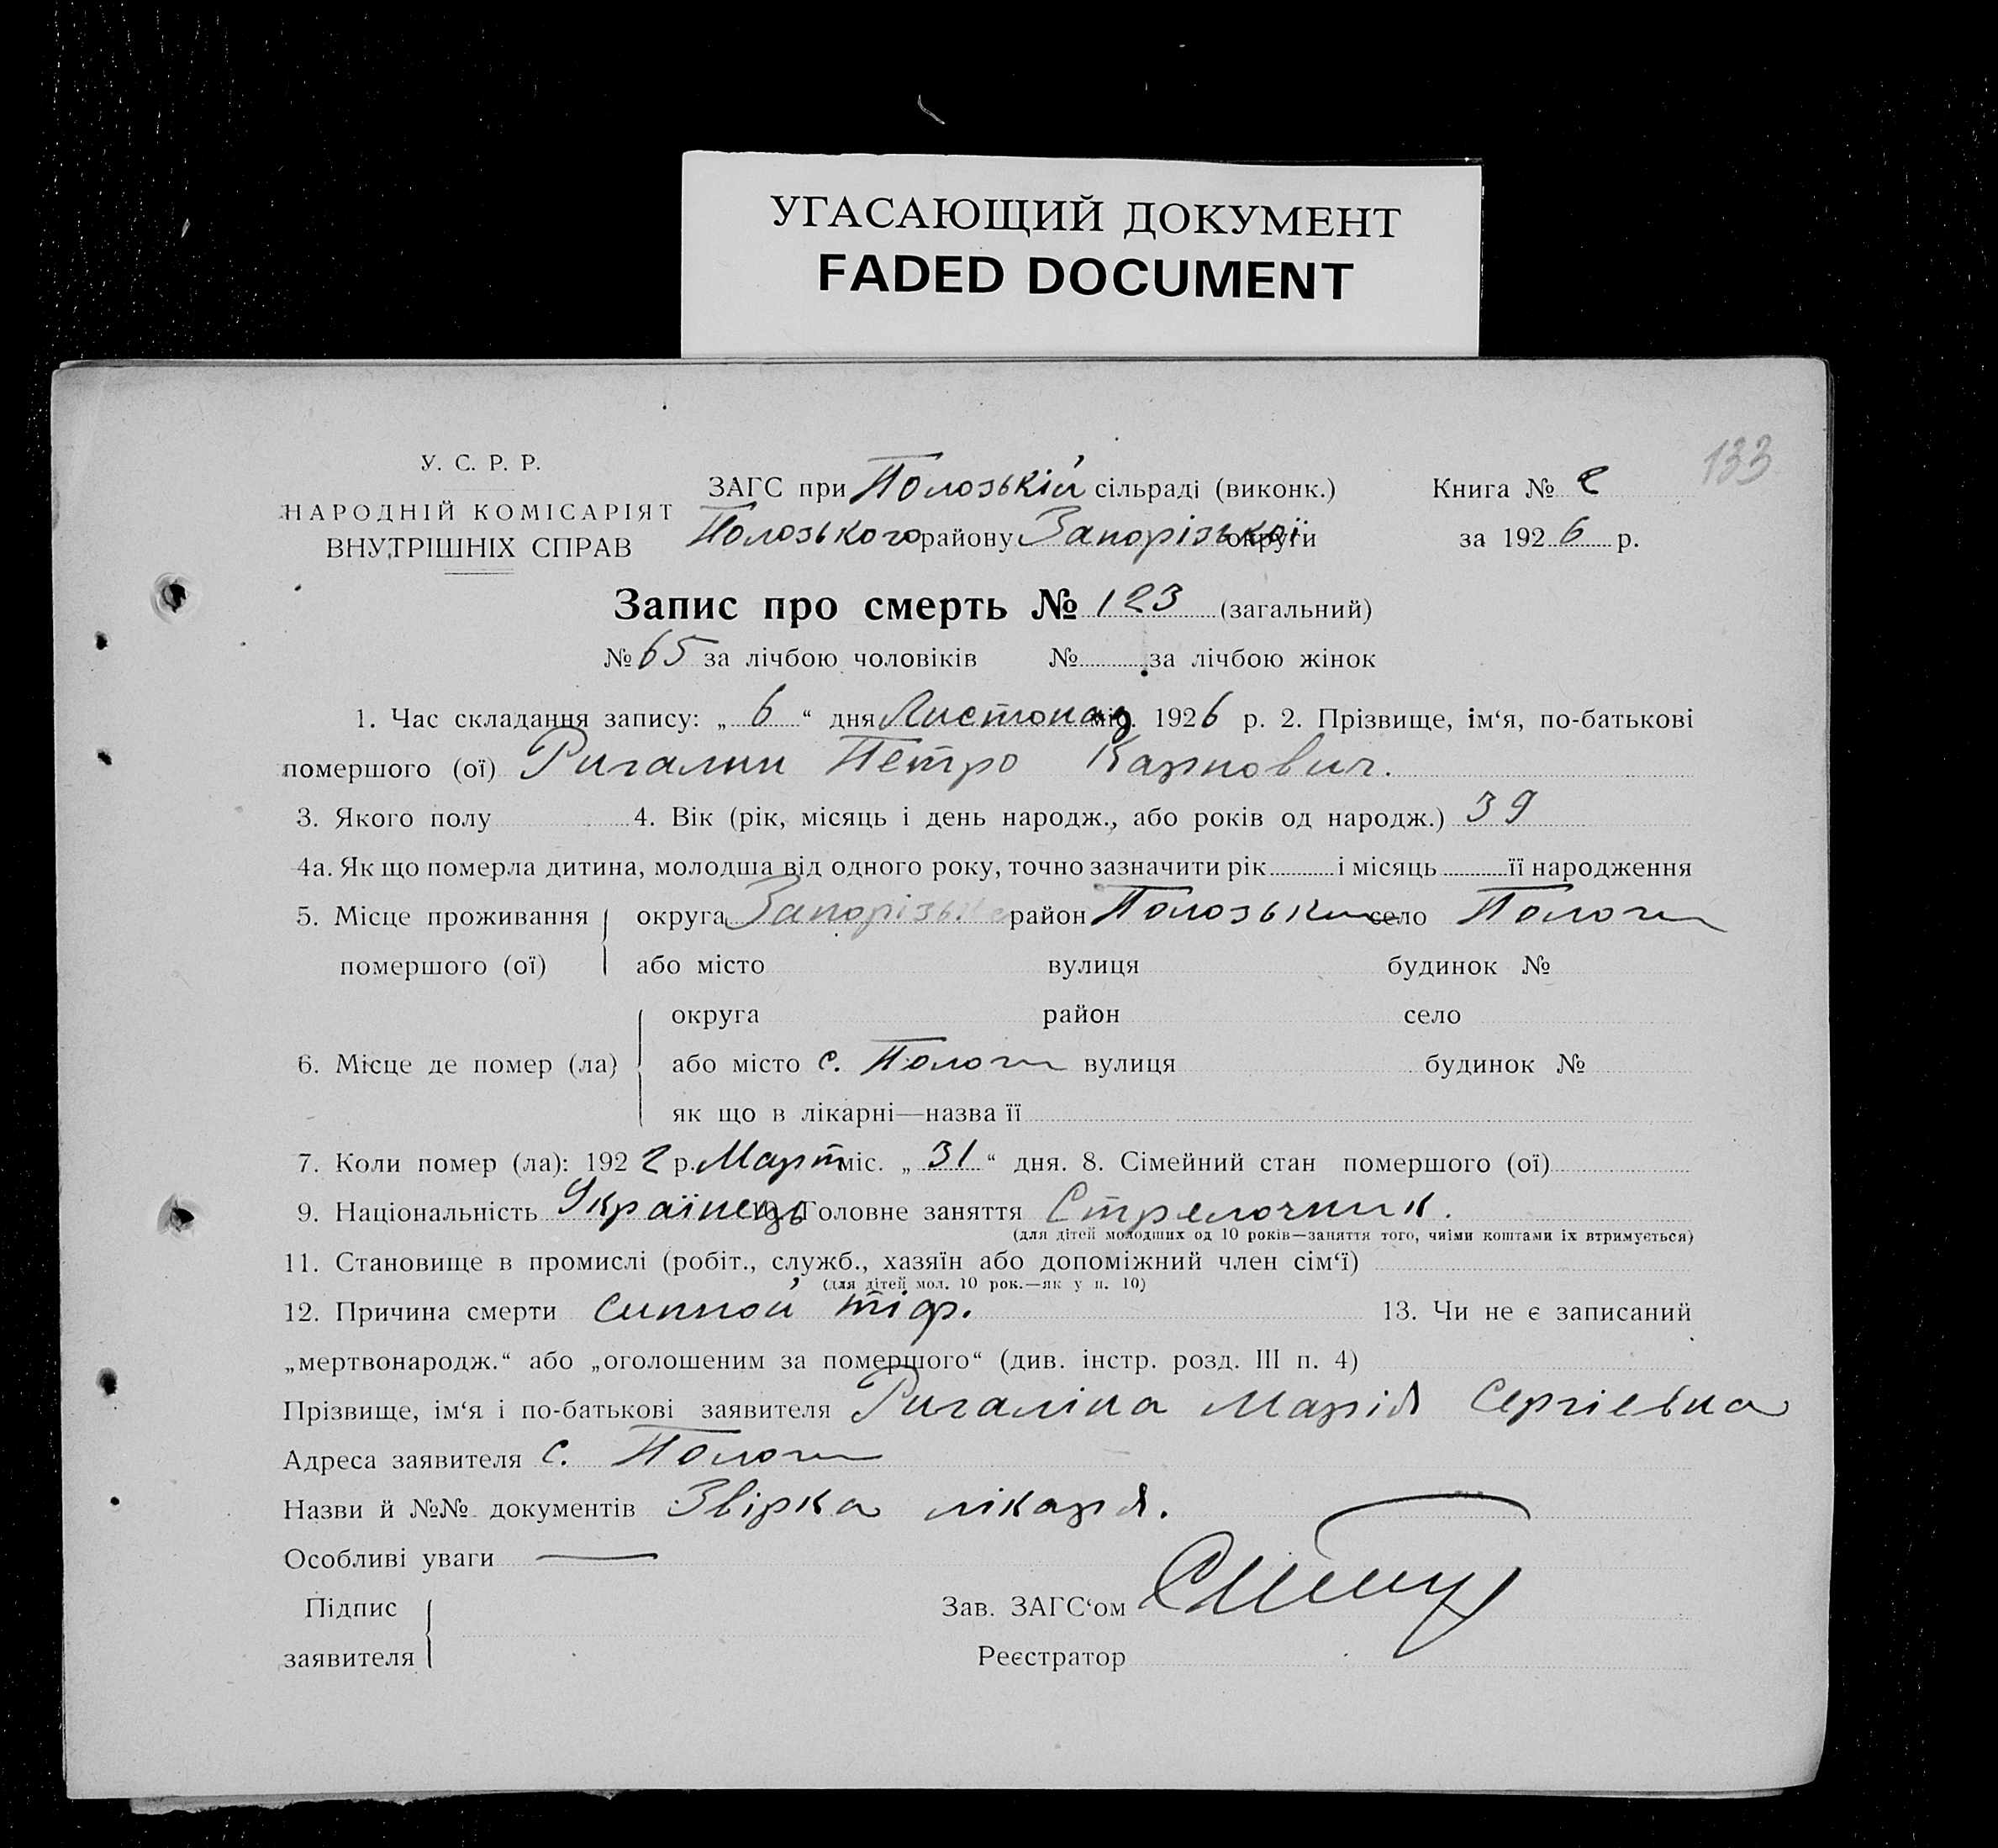 УГАСАЮЩИЙ ДОКУМЕНТ
FADED DOCUMENT
133
У. С. Р. Р.
НАРОДНІЙ КОМІСАРІЯТ
ВНУТРІШНІХ СПРАВ
ЗАГС при Полозькій сільраді (виконк.)
Полозького району Запорізької округи
Книга № 2
за 1926 р.
Запис про смерть № 123 (загальний)
№ 65 за лічбою чоловіків № за лічбою жінок
1. Час складання запису: „ 6 “ дня Листопад міс. 1926 р. 2. Прізвище, ім‘я, по-батькові
помершого (ої) Ригалин Петро Карпович.
3. Якого полу 4. Вік (рік, місяць і день народж., або років од народж.) 39
4а. Як що померла дитина, молодша від одного року, точно зазначити рік і місяць її народження
5. Місце проживання округа Запорізька район Полозьки село Пологи
помершого (ої) або місто вулиця будинок №
округа район село
6. Місце де помер (ла) або місто с. Пологи вулиця будинок №
як що в лікарні—назва її
7. Коли помер (ла): 1922 р. Март міс. „ 31 “ дня. 8. Сімейний стан помершого (ої)
9. Національність Українець 10. Головне заняття Стрелочник.
(для дітей молодших од 10 років—заняття того, чиїми коштами їх втримується)
11. Становище в промислі (робіт., служб., хазяїн або допоміжний член сім‘ї)
(для дітей мол. 10 рок.—як у п. 10)
12. Причина смерти сипной тіф. 13. Чи не є записаний
„мертвонародж.“ або „оголошеним за помершого“ (див. інстр. розд. III п. 4)
Прізвище, ім‘я і по-батькові заявителя Ригаліна Марія Сергіевна
Адреса заявителя с. Пологи
Назви й №№ документів Звірка лікаря.
Особливі уваги —
Підпис
заявителя
Зав. ЗАГС‘ом
Реєстратор